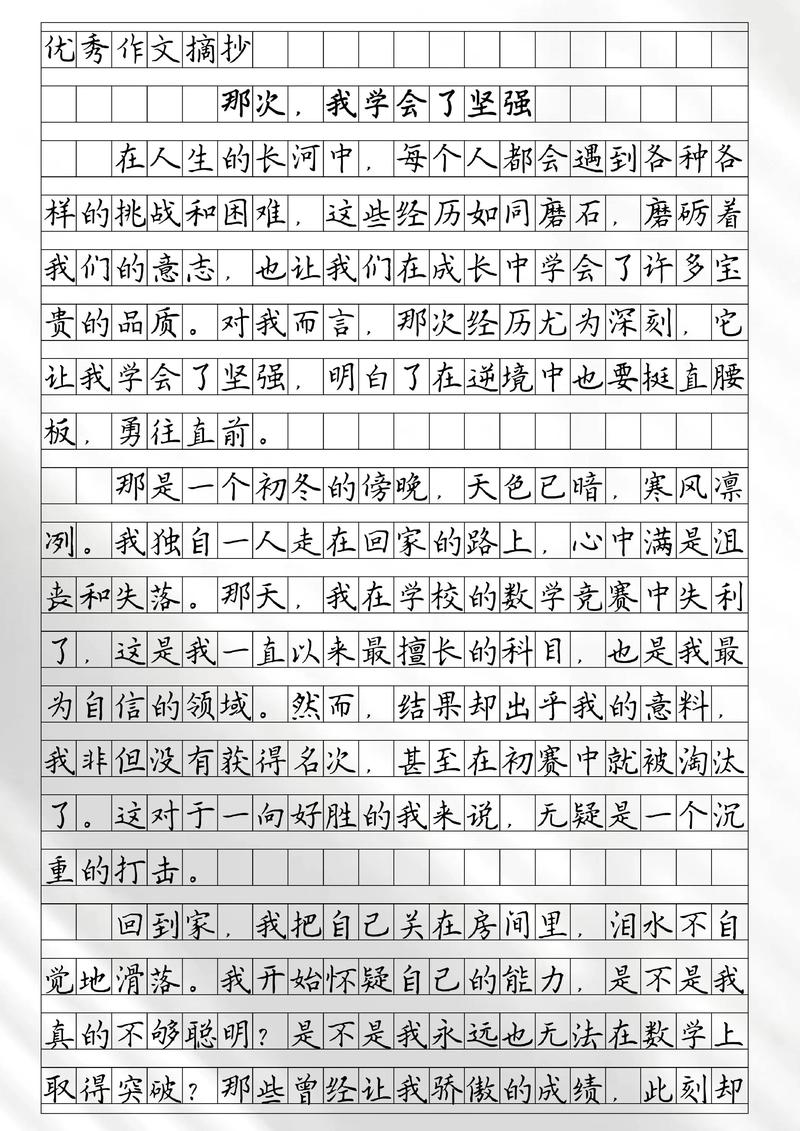 优秀作文摘抄
那次，我学会了坚强
在人生的长河中，每个人都会遇到各种各
样的挑战和困难，这些经历如同磨石，磨砺着
我们的意志，也让我们在成长中学会了许多宝
贵的品质。对我而言，那次经历尤为深刻，它
让我学会了坚强，明白了在逆境中也要挺直腰
板，勇往直前。
那是一个初冬的傍晚，天色已暗，寒风凛
冽。我独自一人走在回家的路上，心中满是沮
丧和失落。那天，我在学校的数学竞赛中失利
了，这是我一直以来最擅长的科目，也是我最
为自信的领域。然而，结果却出乎我的意料，
我非但没有获得名次，甚至在初赛中就被淘汰
了。这对于一向好胜的我来说，无疑是一个沉
重的打击。
回到家，我把自己关在房间里，泪水不自
觉地滑落。我开始怀疑自己的能力，是不是我
真的不够聪明？是不是我永远也无法在数学上
取得突破？那些曾经让我骄傲的成绩，此刻却